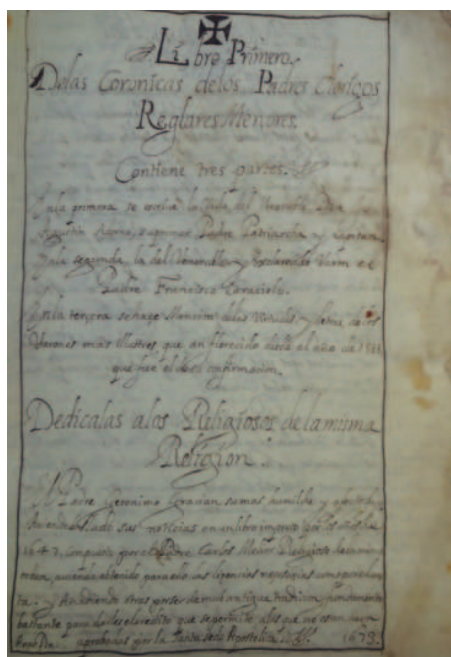 Libro Primero.
Delas Coronicas delos Padres Clerigos
Reglares Menores.
Contiene tres partes.
Enla primera se escrive la Vida del Venerable Padre
Agustin Adorno, su primer Padre Patriarcha y Capitan.
Enla segunda, la del Venerable y Esclarecido Varon el
Padre Francisco Caraciolo.
Enla tercera se haze Mencion delas Virtudes y letras delos
Varones mas Illustres que an florecido desde el año de 1588
que fue el de su confirmacion.
Dedicalas alos Religiosos dela misma
Religion.
El Padre Geronimo Gracian su mas humilde y
sus noticias en un libro impreso por los años de
1647, compuesto por el Padre Carlos Religioso dela misma
orden, aviendo obtenido para ello las licencias
Añadiendo otras posteriores de muy antigua tradicion, fundamento
bastante para darles el credito que se permite alos que no estan
aprobadas por la Santa Sede Apostolica. 1673.